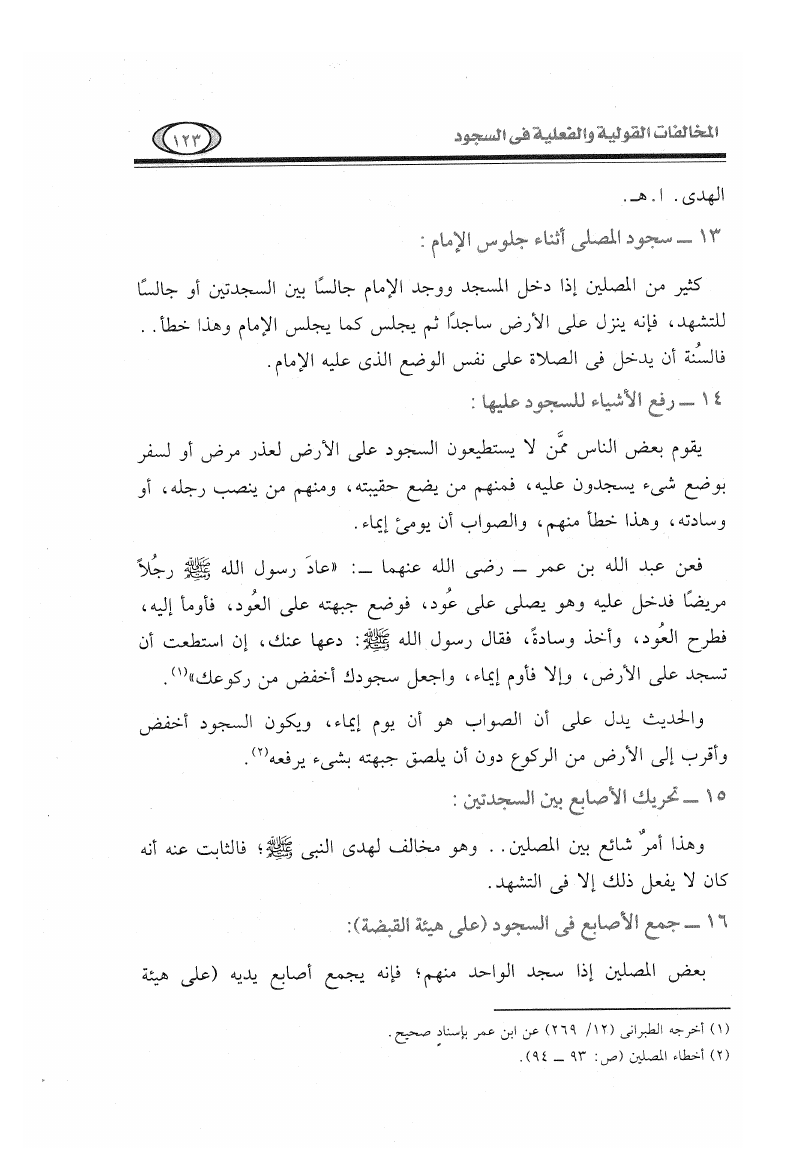 المخالفات القولية والفعلية فى السجود
١٢٣
الهدى. ا. هـ.
١٣ ـ سجود المصلى أثناء جلوس الإمام :
كثير من المصلين إذا دخل المسجد ووجد الإمام جالسًا بين السجدتين أو جالسًا
للتشهد، فإنه ينزل على الأرض ساجدًا ثم يجلس كما يجلس الإمام وهذا خطأ. .
فالسُنة أن يدخل فى الصلاة على نفس الوضع الذى عليه الإمام.
١٤ ـ رفع الأشياء للسجود عليها :
يقوم بعض الناس ممَّن لا يستطيعون السجود على الأرض لعذر مرض أو لسفر
بوضع شىء يسجدون عليه، فمنهم من يضع حقيبته، ومنهم من ينصب رجله، أو
وسادته، وهذا خطأ منهم، والصواب أن يومئ إيماء.
فعن عبد الله بن عمر ـ رضى الله عنهما ـ: «عادَ رسول الله ﷺ رجُلاً
مريضًا فدخل عليه وهو يصلى على عُود، فوضع جبهته على العُود، فأومأ إليه،
فطرح العُود، وأخذ وسادةً، فقال رسول الله ﷺ: دعها عنك، إن استطعت أن
تسجد على الأرض، وإلا فأوم إيماء، واجعل سجودك أخفض من ركوعك»(١).
والحديث يدل على أن الصواب هو أن يوم إيماء، ويكون السجود أخفض
وأقرب إلى الأرض من الركوع دون أن يلصق جبهته بشىء يرفعه(٢).
١٥ ـ تحريك الأصابع بين السجدتين :
وهذا أمرٌ شائع بين المصلين. . وهو مخالف لهدى النبى ﷺ؛ فالثابت عنه أنه
كان لا يفعل ذلك إلا فى التشهد.
١٦ ـ جمع الأصابع فى السجود (على هيئة القبضة):
بعض المصلين إذا سجد الواحد منهم؛ فإنه يجمع أصابع يديه (على هيئة
(١) أخرجه الطبرانى (١٢/ ٢٦٩) عن ابن عمر بإسنادٍ صحيح.
(٢) أخطاء المصلين (ص: ٩٣ ـ ٩٤).